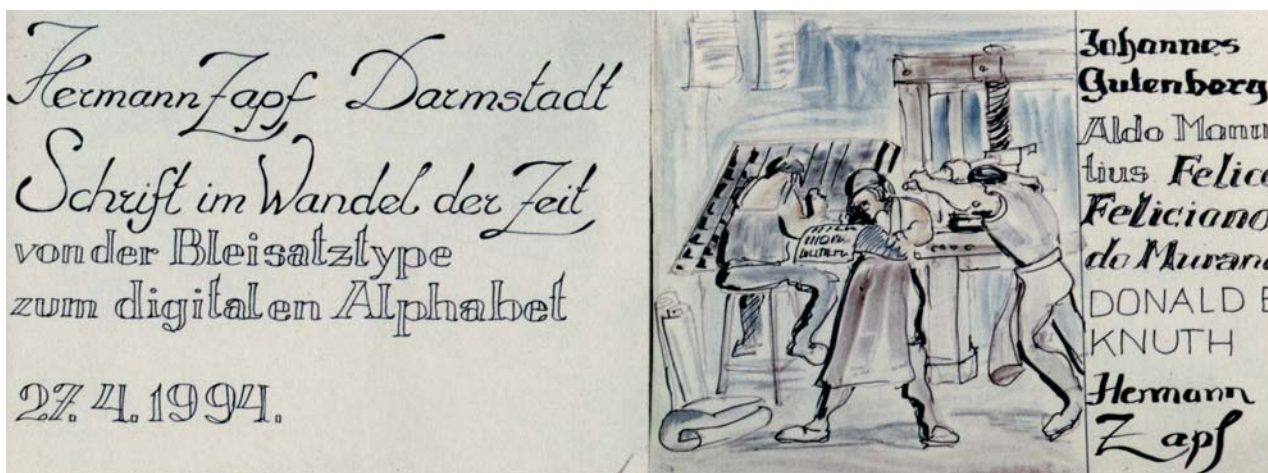 Hermann Zapf Darmstadt
Schrift im Wandel der Zeit
von der Bleisatztype
zum digitalen Alphabet
27.4.1994.
Johannes
Gutenberg
Aldo Manu
tius Felice
Feliciano
do Murano
DONALD E
KNUTH
Hermann
Zapf